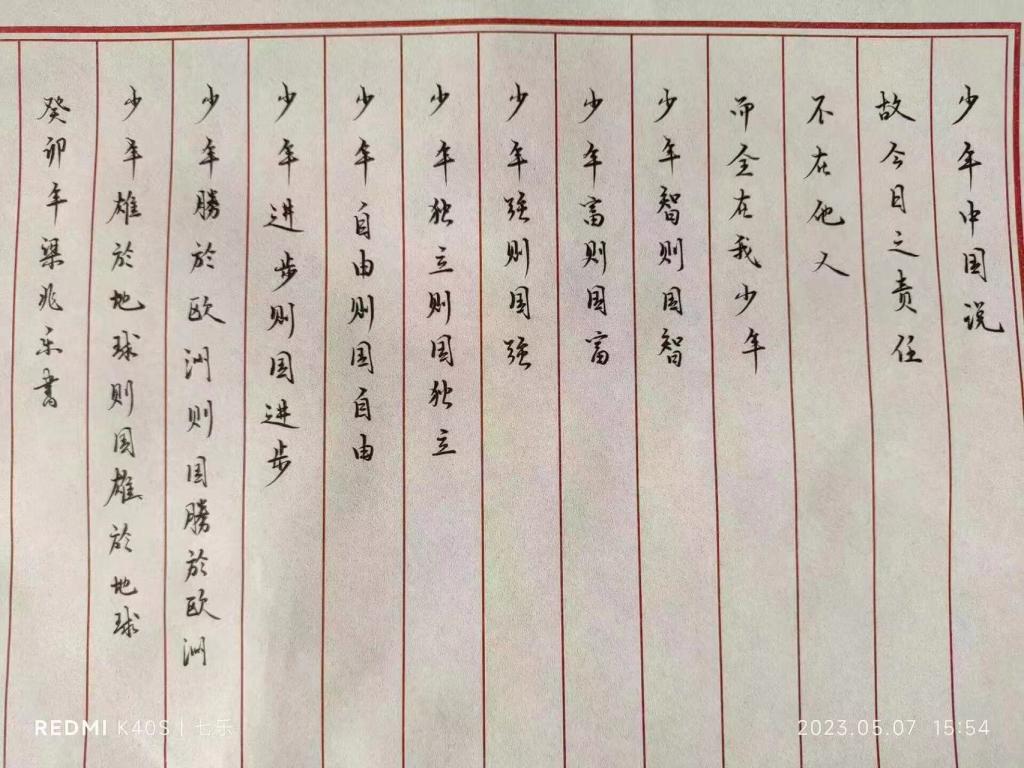 少年中国说
故今日之责任
不在他人
而全在我少年
少年智则国智
少年富则国富
少年强则国强
少年独立则国独立
少年自由则国自由
少年进步则国进步
少年勝於欧洲则国勝於欧洲
少年雄於地球则国雄於地球
癸卯年梁兆乐書
REDMI K40S | 七乐
2023.05.07 15:54